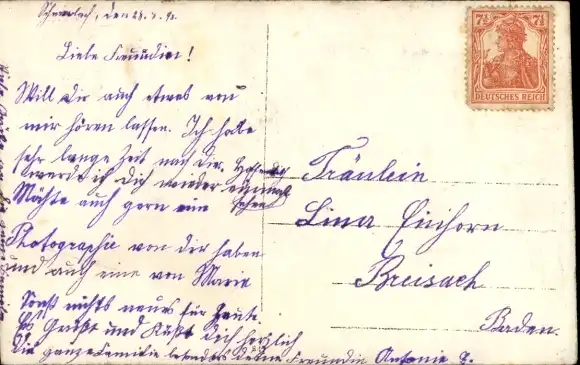 den 28.
Liebe Freundin!
Will Dir auch etwas von
mir hören lassen. Ich habe
sehr lange Zeit nach dir. Hoffendlich
werde ich Dich wieder einmal
sehen
Möchte auch gern eine
Photographie von dir haben
und auch eine von Marie
Sonst nichts neues für heute
Es Grüßt und Küßt dich herzlich
die ganze Familie besonders deine Freundin Antonie
7½ 7½
DEUTSCHES REICH
Fräulein
Lina Einhorn
Breisach
Baden.